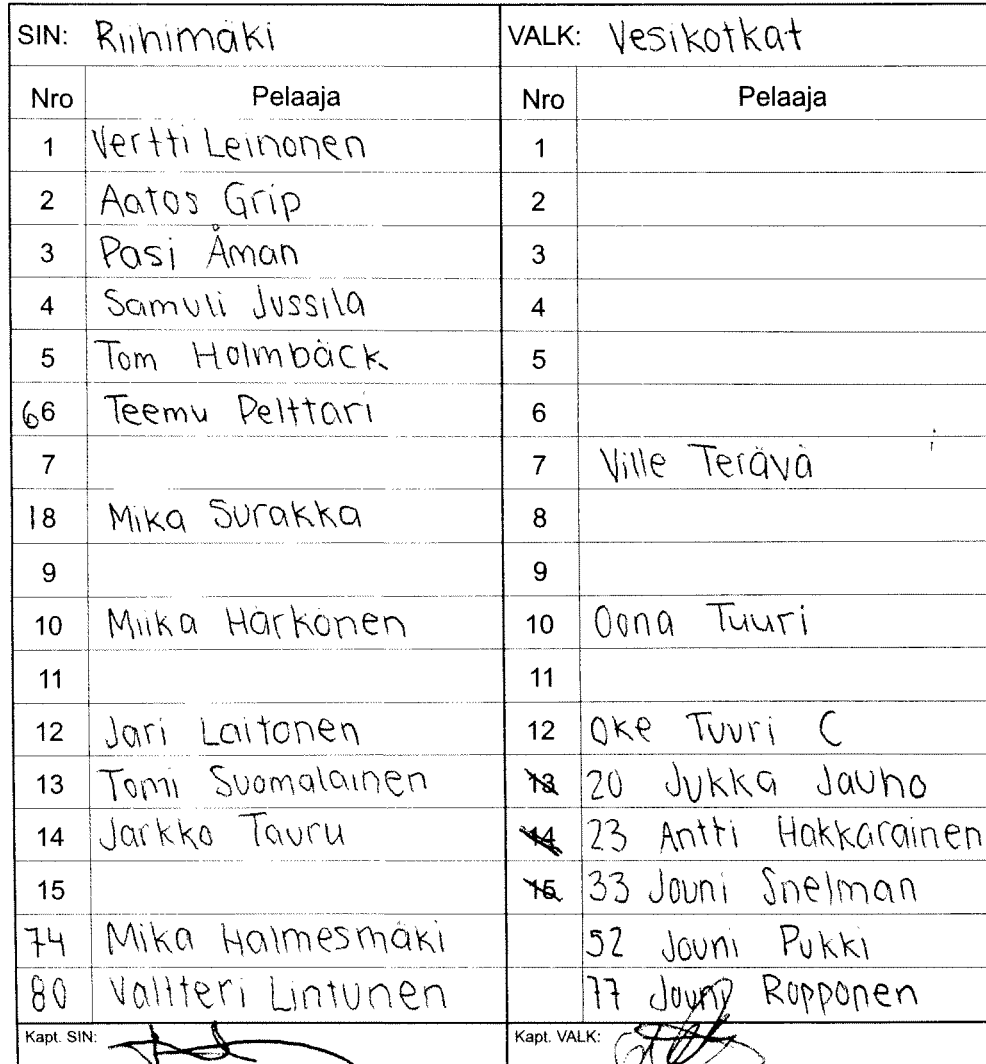 SIN: Riihimäki VALK: Vesikotkat
Nro Pelaaja Nro Pelaaja
1 Vertti Leinonen 1
2 Aatos Grip 2
3 Pasi Åman 3
4 Samuli Jussila 4
5 Tom Holmbäck 5
66 Teemu Pelttari 6
7 7 Ville Terävä
18 Mika Surakka 8
9 9
10 Miika Härkönen 10 Oona Tuuri
11 11
12 Jari Laitonen 12 Oke Tuuri C
13 Tomi Suomalainen 13 20 Jukka Jauho
14 Jarkko Tauru 14 23 Antti Hakkarainen
15 15 33 Jouni Snelman
74 Mika Halmesmäki 52 Jouni Pukki
80 Valtteri Lintunen 77 Jouni Ropponen
Kapt. SIN: Kapt. VALK: